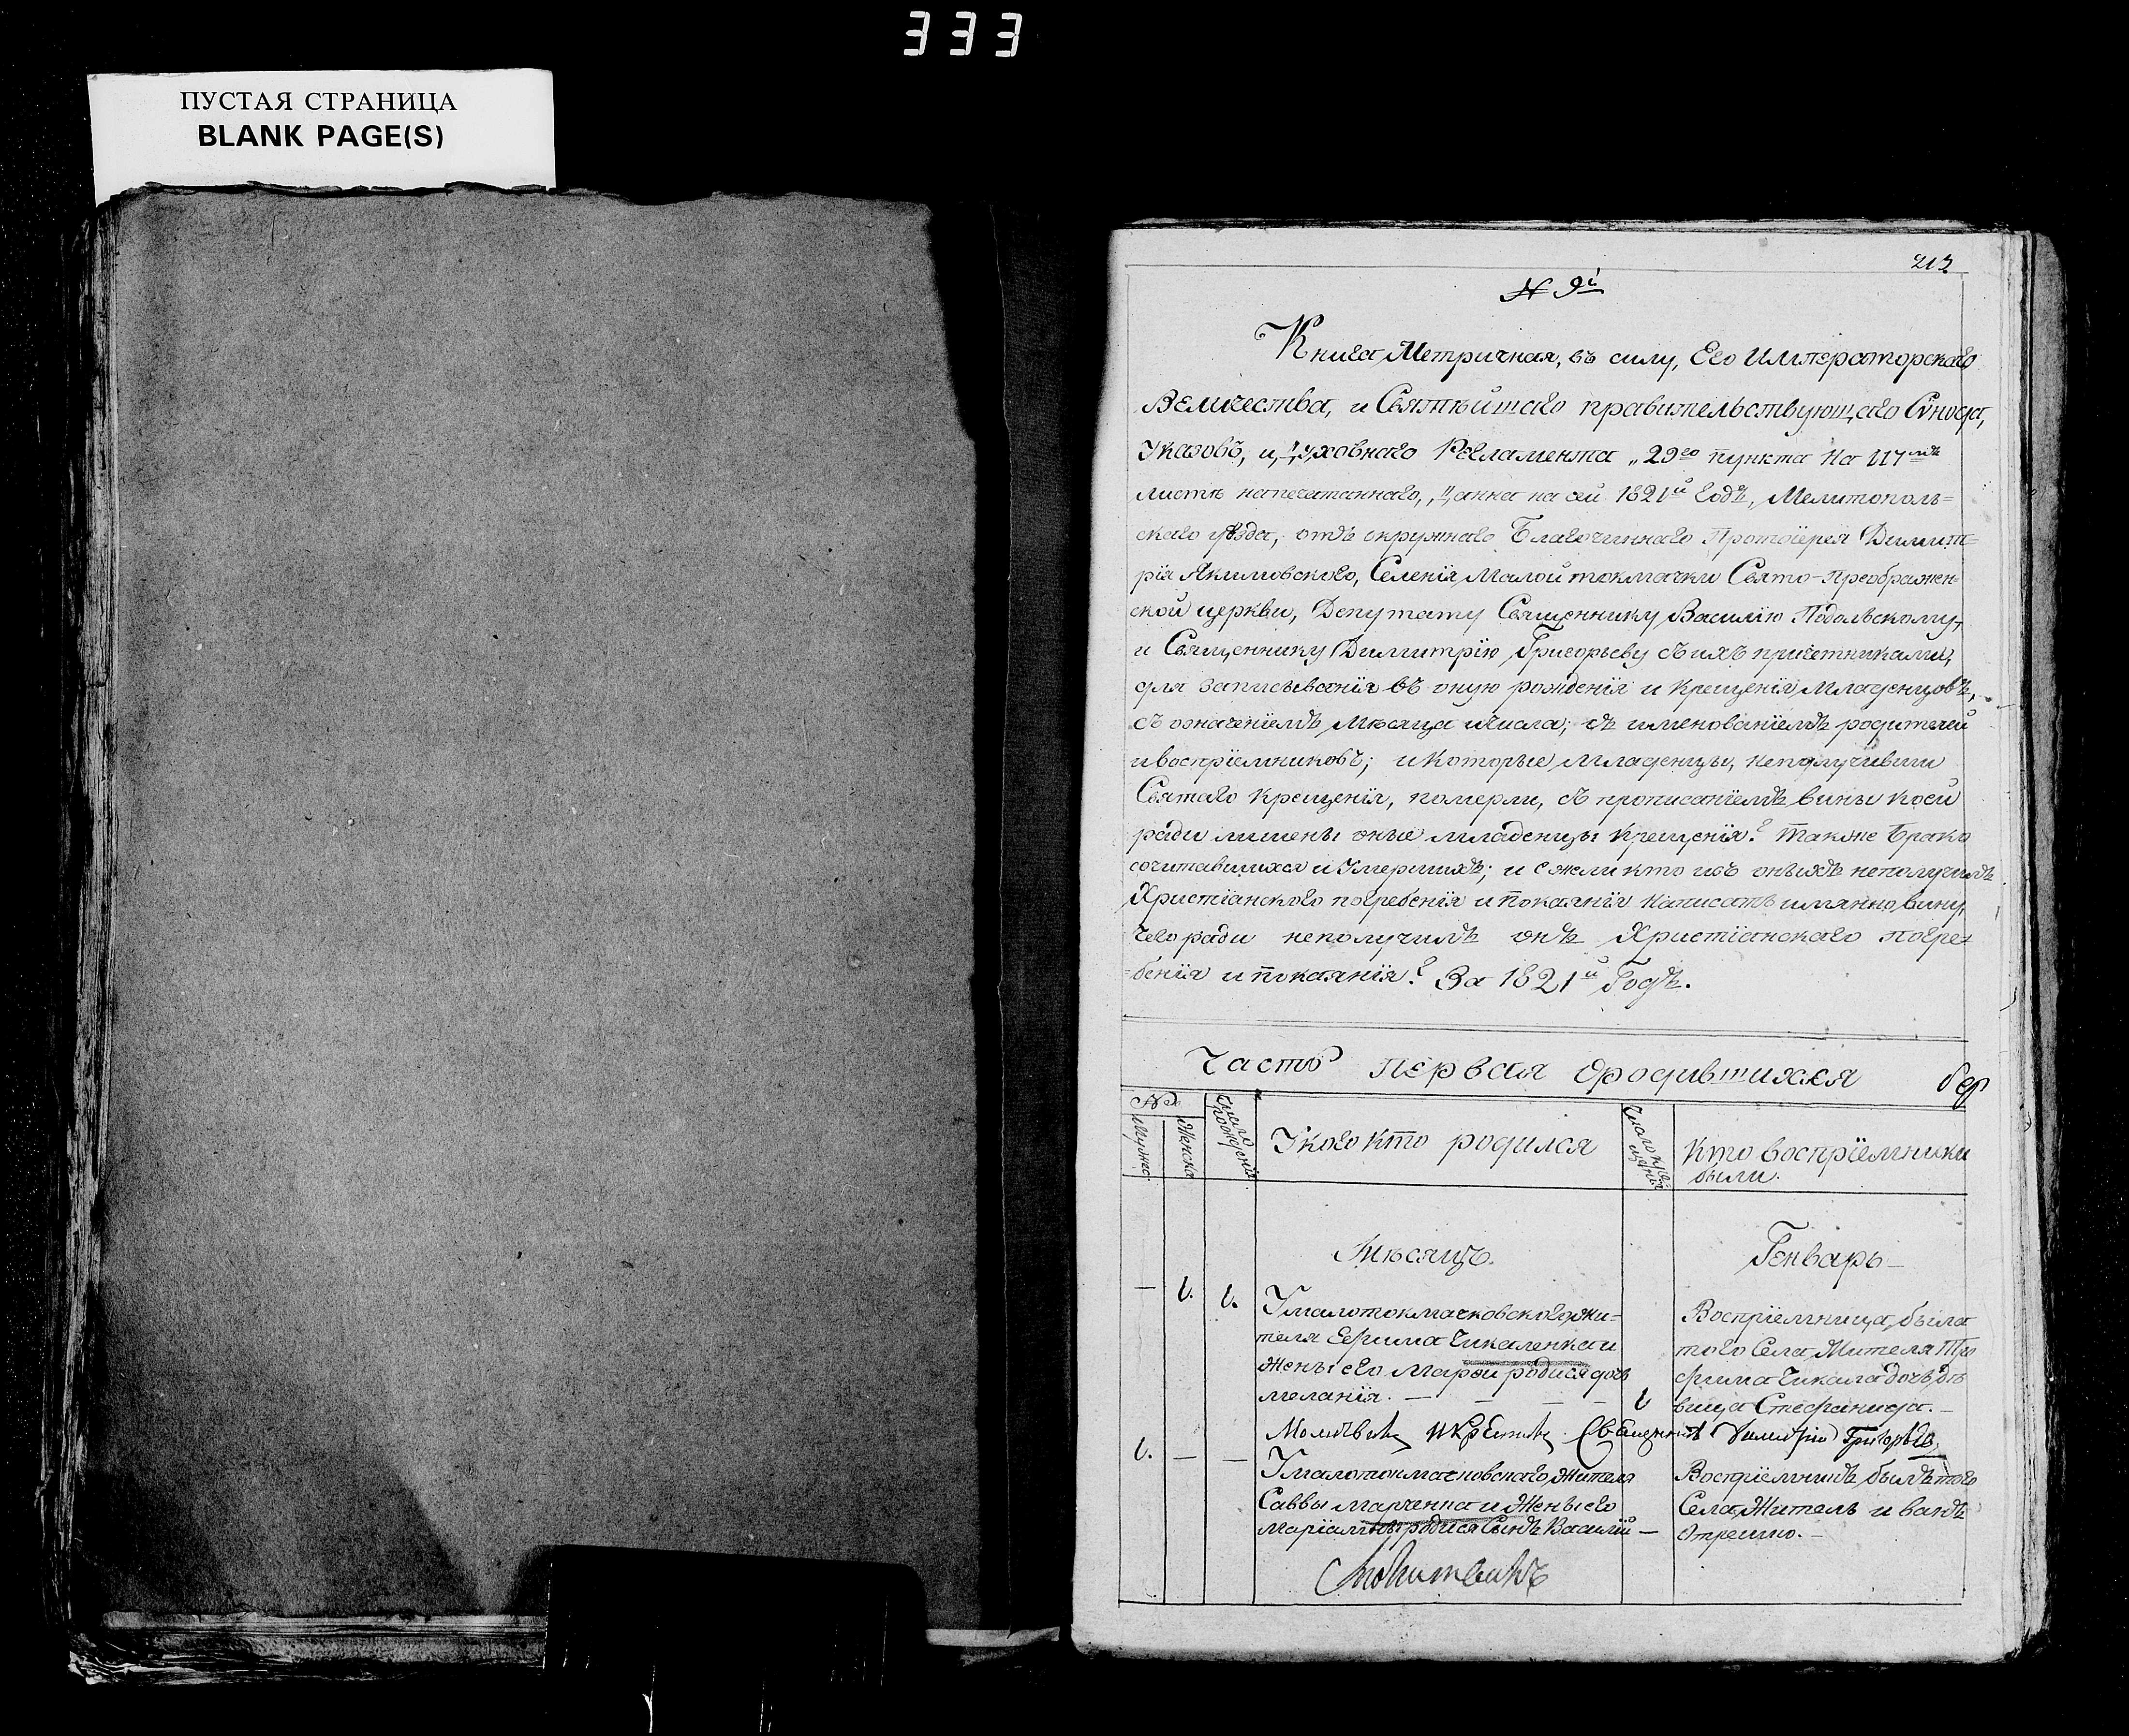 333
ПУСТАЯ СТРАНИЦА
BLANK PAGE(S)
213
№ 9й
Книга Метричная, въ силу, Его Императорскаго
Величества, и Святѣйшаго правительствующаго Сѵнода,
Указовъ, и, Духовнаго Регламента „29го пункта на
листѣ напечатаннаго, „Данна на сей 1821й Годъ, Мелитополь=
скаго уѣзда, отъ окружнаго Благочиннаго Протоіерея Димит=
рія Акимовского, Селенія Малой токмачки Свято-Преображен=
ской церкви, Депутату Священнику Василію Подольскому,
и Священнику Димитрію Григорьеву съ ихъ причетниками,
для записыванія въ оную рожденія и крещенія Младенцовъ,
съ означеніемъ Мѣсяца и числа; съ именованіемъ родителей
и воспріемниковъ; и которые младенцы, неполучивши
Святаго крещенія, померли, съ прописаніемъ вины коей
ради лишены оные младенцы крещенія? также Брако
сочитавшихся и Умершихъ; и ежели кто изъ оныхъ неполучилъ
Христіанского погребенія и покаянія написать имянно вину,
чего ради неполучилъ онъ Христіанскаго погре=
=бенія и покаянія? За 1821й Годъ.
Часть первая ородившихся
№
Мужес
Женска
число рожденія
У кого кто родился
число кре=щенія
Кто воспріемники
были.
Мѣсяцъ.
Генварь
— 1. 1. Умалотокмачковскогожи=
теля Ефима Чикаленка и
жены его Марфи родися дочь
меланія. — — — — 1
Воспріемница, была
того Села Жителя Тро
фима Чикала дочь дѣ
вица Стефанида.
Молитв. и крестилъ Священникъ Димитрій Григорьевъ
1. — — Умалотокмачковскаго жителя
Саввы марченка и Жены его
маріамны родися Сынъ Василій —
Воспріемникъ былъ того
Села Житель иванъ
отрешко. —